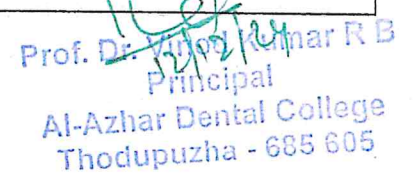 Prof. Dr. Vinod Kumar R B
12/12/24
Principal
Al-Azhar Dental College
Thodupuzha - 685 605